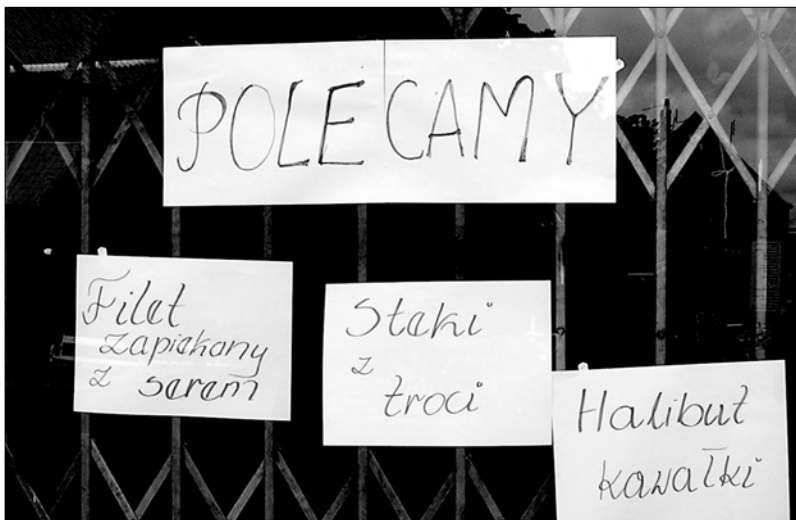 POLECAMY
Filet
zapiekany
z serem
Steki
z
troci
Halibut
kawałki